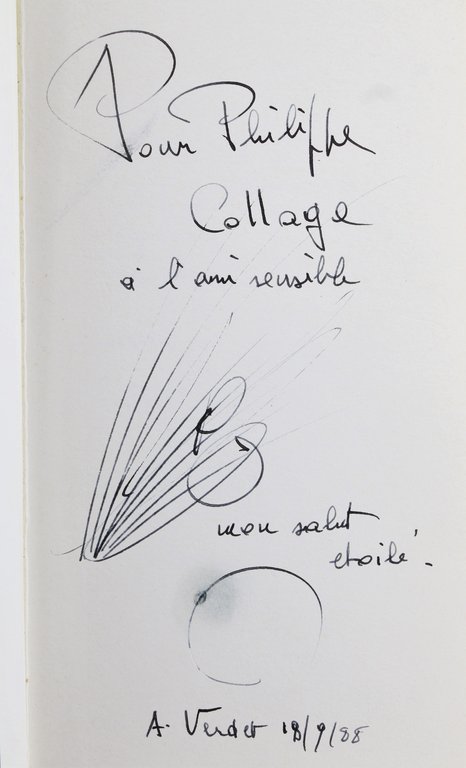 Pour Philippe
Collage
à l'ami sensible
mon salut
etoilé.
A. Verdet 18/9/88